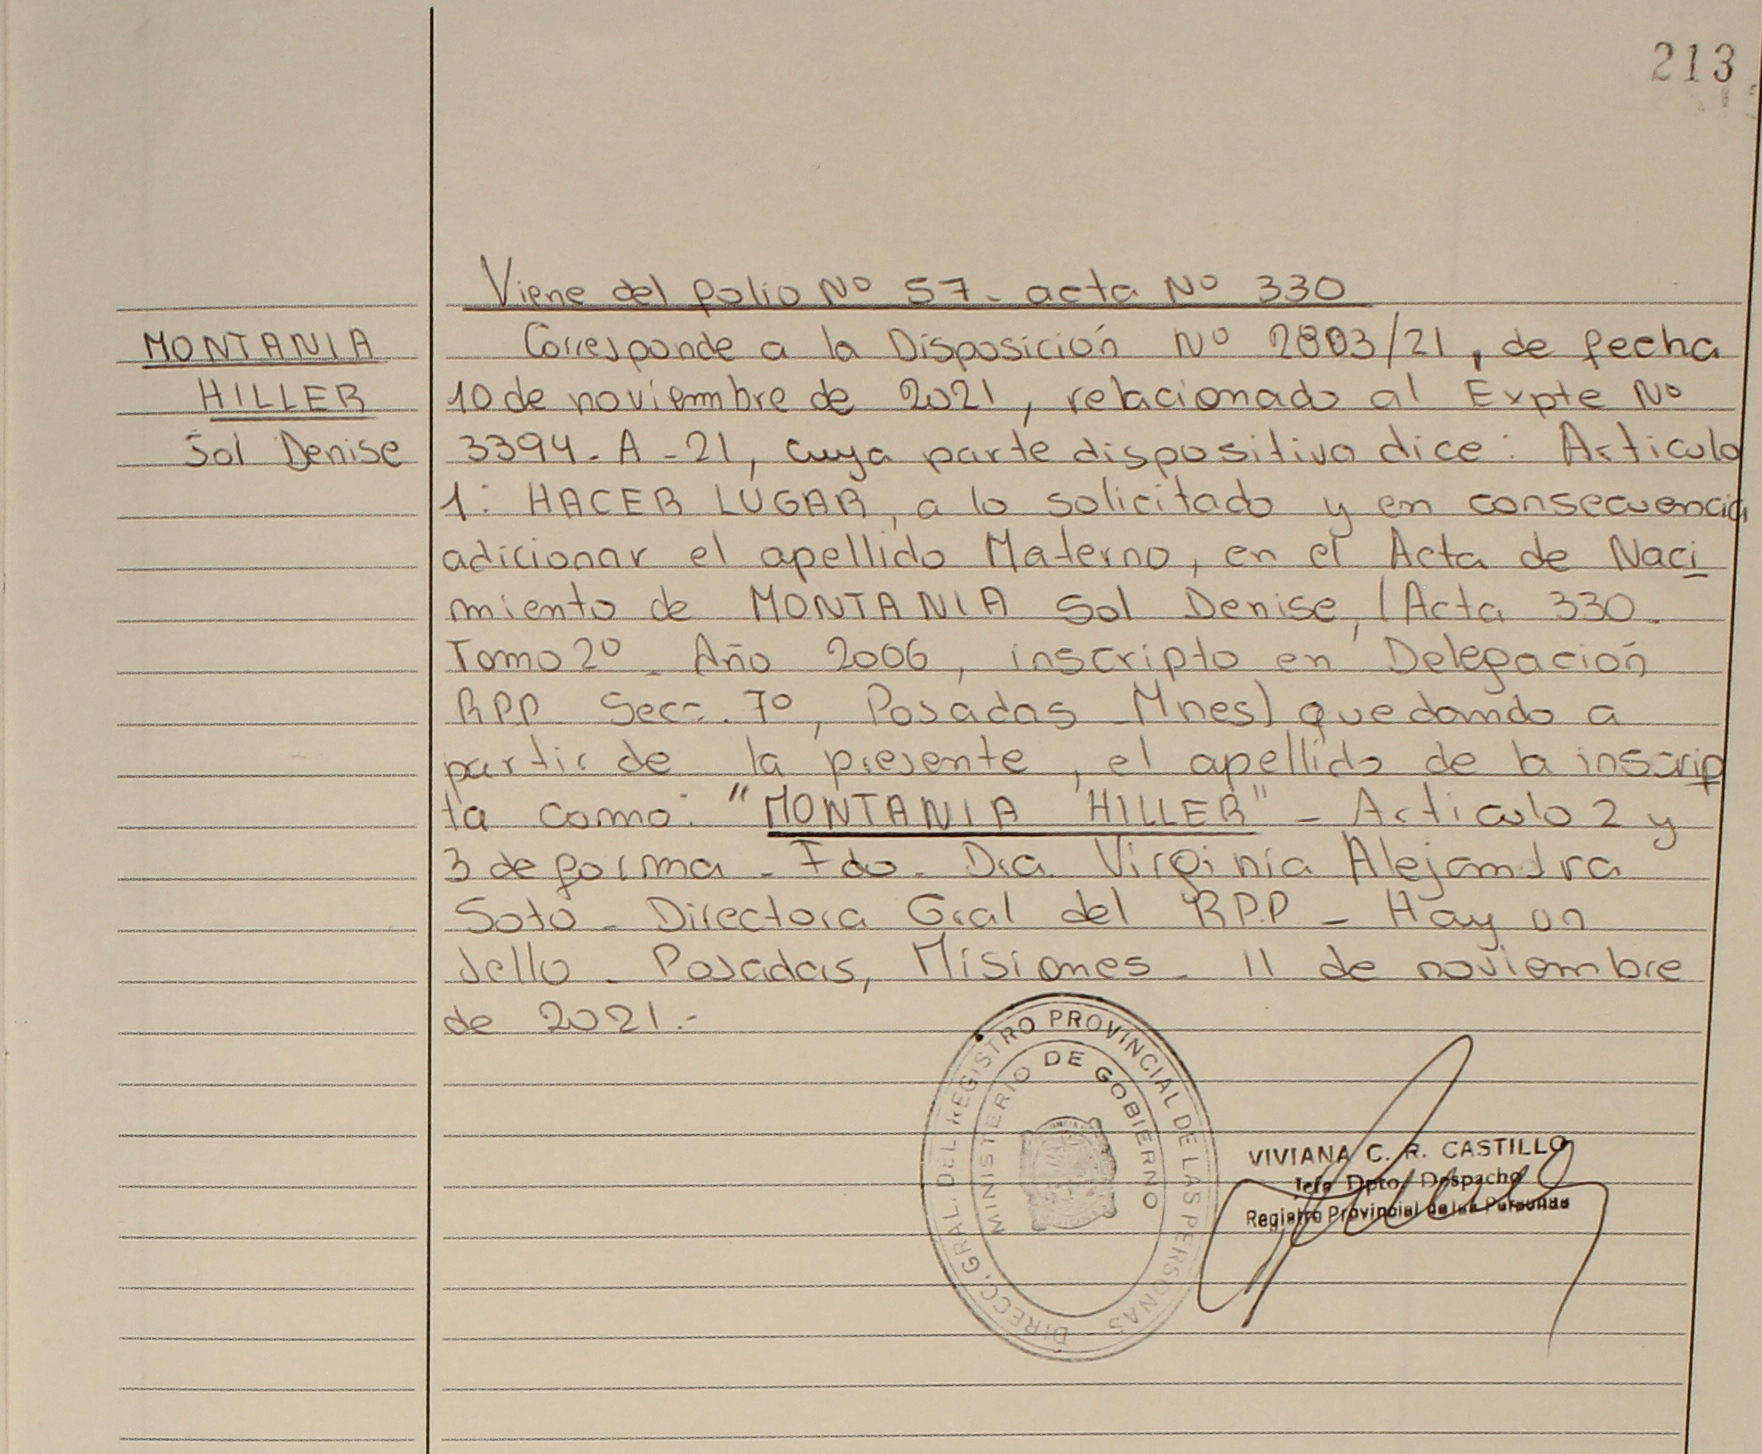 213
Viene del folio Nº 57- acta Nº 330
MONTANIA
HILLER
Sol Denise
Corresponde a la Disposición Nº 2803/21, de fecha
10 de noviembre de 2021, relacionado al Expte Nº
3394-A-21, cuya parte dispositiva dice: Articulo
1: HACER LUGAR, a lo solicitado y en consecuencia
adicionar el apellido Materno, en el Acta de Naci
miento de MONTANIA Sol Denise, (Acta 330-
Tomo 2º- Año 2006, inscripto en Delegación
RPP Secc. 7º, Posadas Mnes) quedando a
partir de la presente, el apellido de la inscrip
ta como: "MONTANIA HILLER" - Articulo 2 y
3 de forma - Fdo- Dra. Virginia Alejandra
Soto - Directora Gral del RPP - Hay un
sello - Posadas, Misiones - 11 de noviembre
de 2021.-
DIRECC. GRAL. DEL REGISTRO PROVINCIAL DE LAS PERSONAS -
MINISTERIO DE GOBIERNO
VIVIANA C. R. CASTILLO
Jefa Dpto. Despacho
Registro Provincial de las Personas